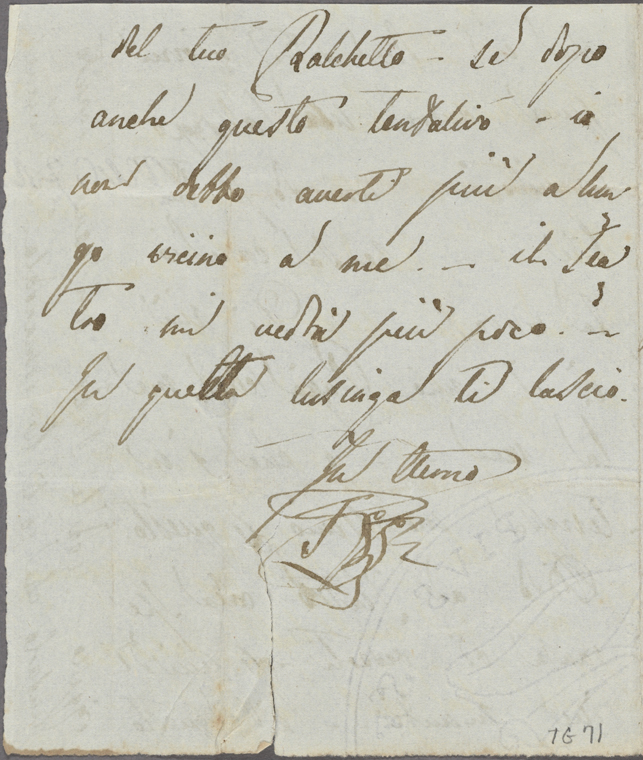 del tuo Palchetto - se dopo
anche questo tentativo - io
non debbo averti più a lun
go vicino a me. - il Tea
tro mi vedrà più poco. -
In questa lusinga ti lascio.
In eterno
7G 71